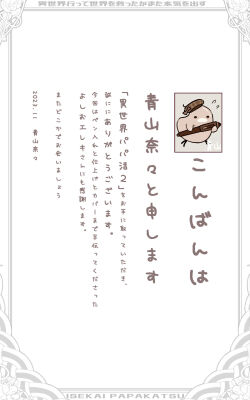 異世界行って世界を救ったからまた本気を出す
こんばんは
青山奈々と申します
「異世界パパ活2」をお手に取っていただき、
誠にありがとうございます。
今回はペン入れと仕上げとカバーまで手伝ってくださった
よしおエレキさんにも感謝します。
またどこかでお会いしましょう
2023.11 青山奈々
ISEKAI PAPAKATSU